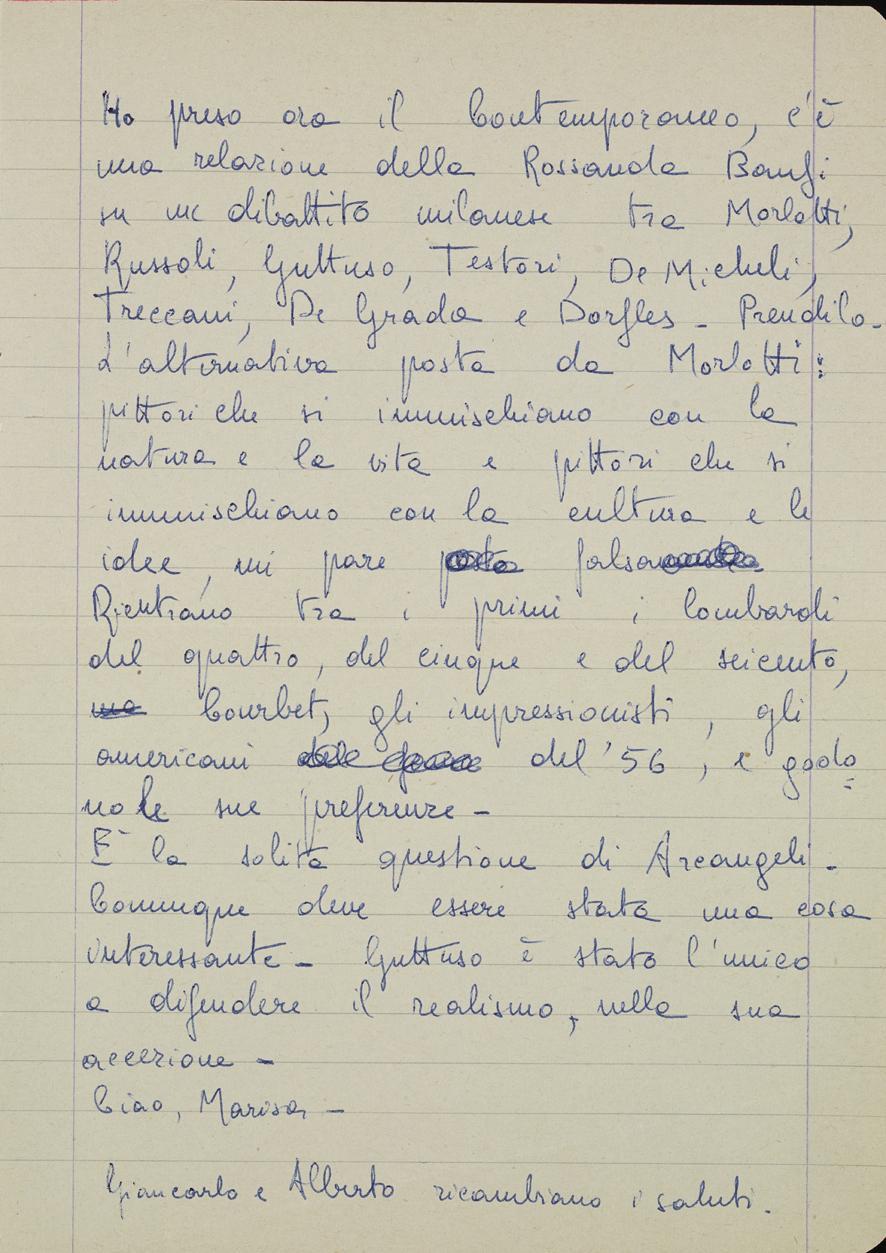 Ho preso ora il Contemporaneo, c'è
una relazione della Rossanda Banfi
su un dibattito milanese tra Morlotti,
Russoli, Guttuso, Testori, De Micheli,
Treccani, De Grada e Dorfles - Prendilo.
L'alternativa posta da Morlotti:
pittori che si immischiano con la
natura e la vita e pittori che si
immischiano con la cultura e le
idee, mi pare falsa
Rientrano tra i primi i lombardi
del quattro, del cinque e del seicento,
Courbet, gli impressionisti, gli
americani del '56, e godo
no le sue preferenze -
È la solita questione di Arcangeli -
Comunque deve essere stata una cosa
interessante - Guttuso è stato l'unico
a difendere il realismo, nella sua
accezione -
Ciao, Marisa -
Giancarlo e Alberto ricambiano i saluti.